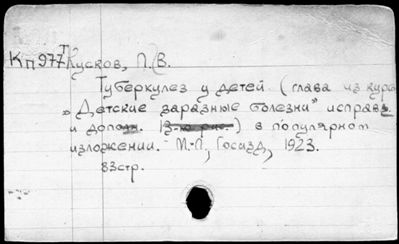 Кп977 Кусков, П. В.
Туберкулез у детей (глава из курса
"Детские заразные болезни" исправ.
и дополн. 13-ю рис.) в популярном
изложении. М.-П., Госизд, 1923.
83стр.